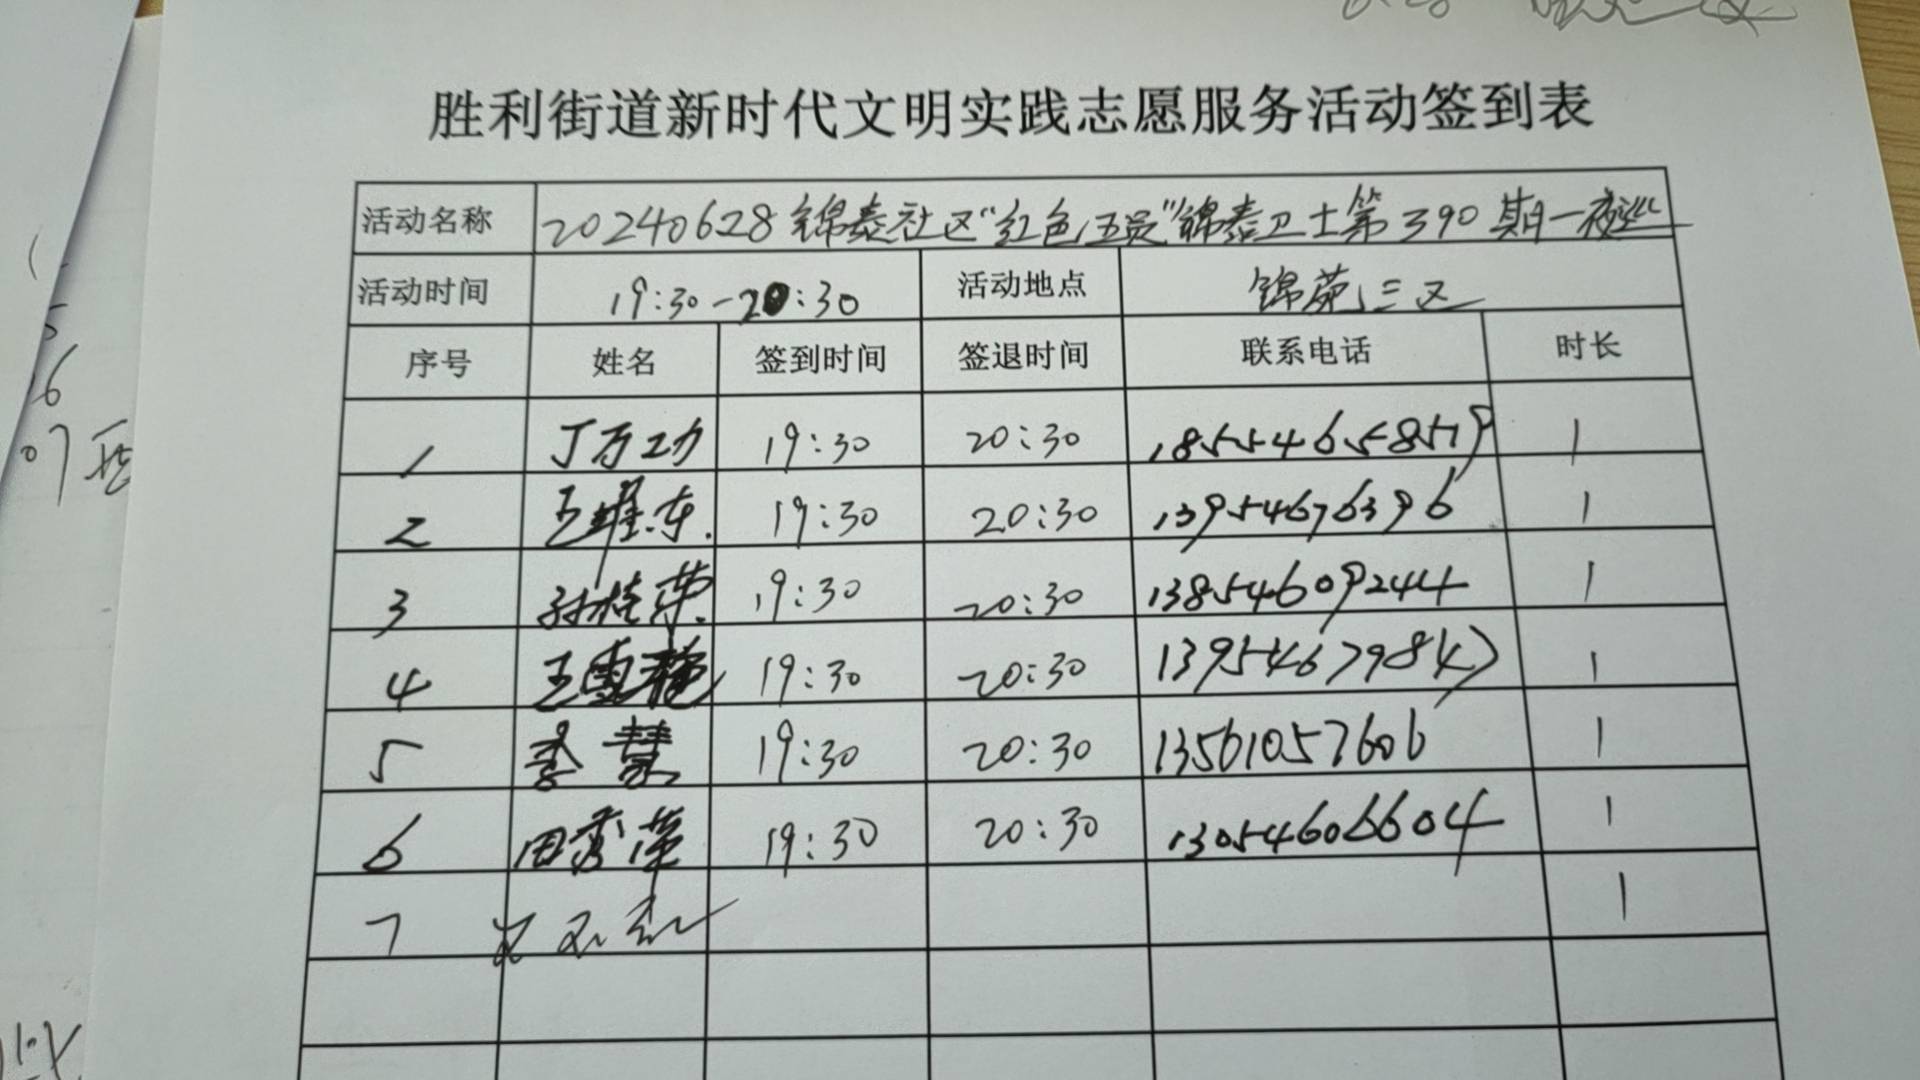 胜利街道新时代文明实践志愿服务活动签到表
活动名称 20240628锦泰社区“红色伍员”锦泰卫士第390期一夜巡
活动时间 19:30-20:30 活动地点 锦苑三区
序号 姓名 签到时间 签退时间 联系电话 时长
1 丁万功 19:30 20:30 18554658519 1
2 王耀东 19:30 20:30 13954676396 1
3 孙桂荣 19:30 20:30 13854609244 1
4 王雪艳 19:30 20:30 13954679847 1
5 季慧 19:30 20:30 13561057606 1
6 田秀荣 19:30 20:30 13054606604 1
7 1
5
6
07